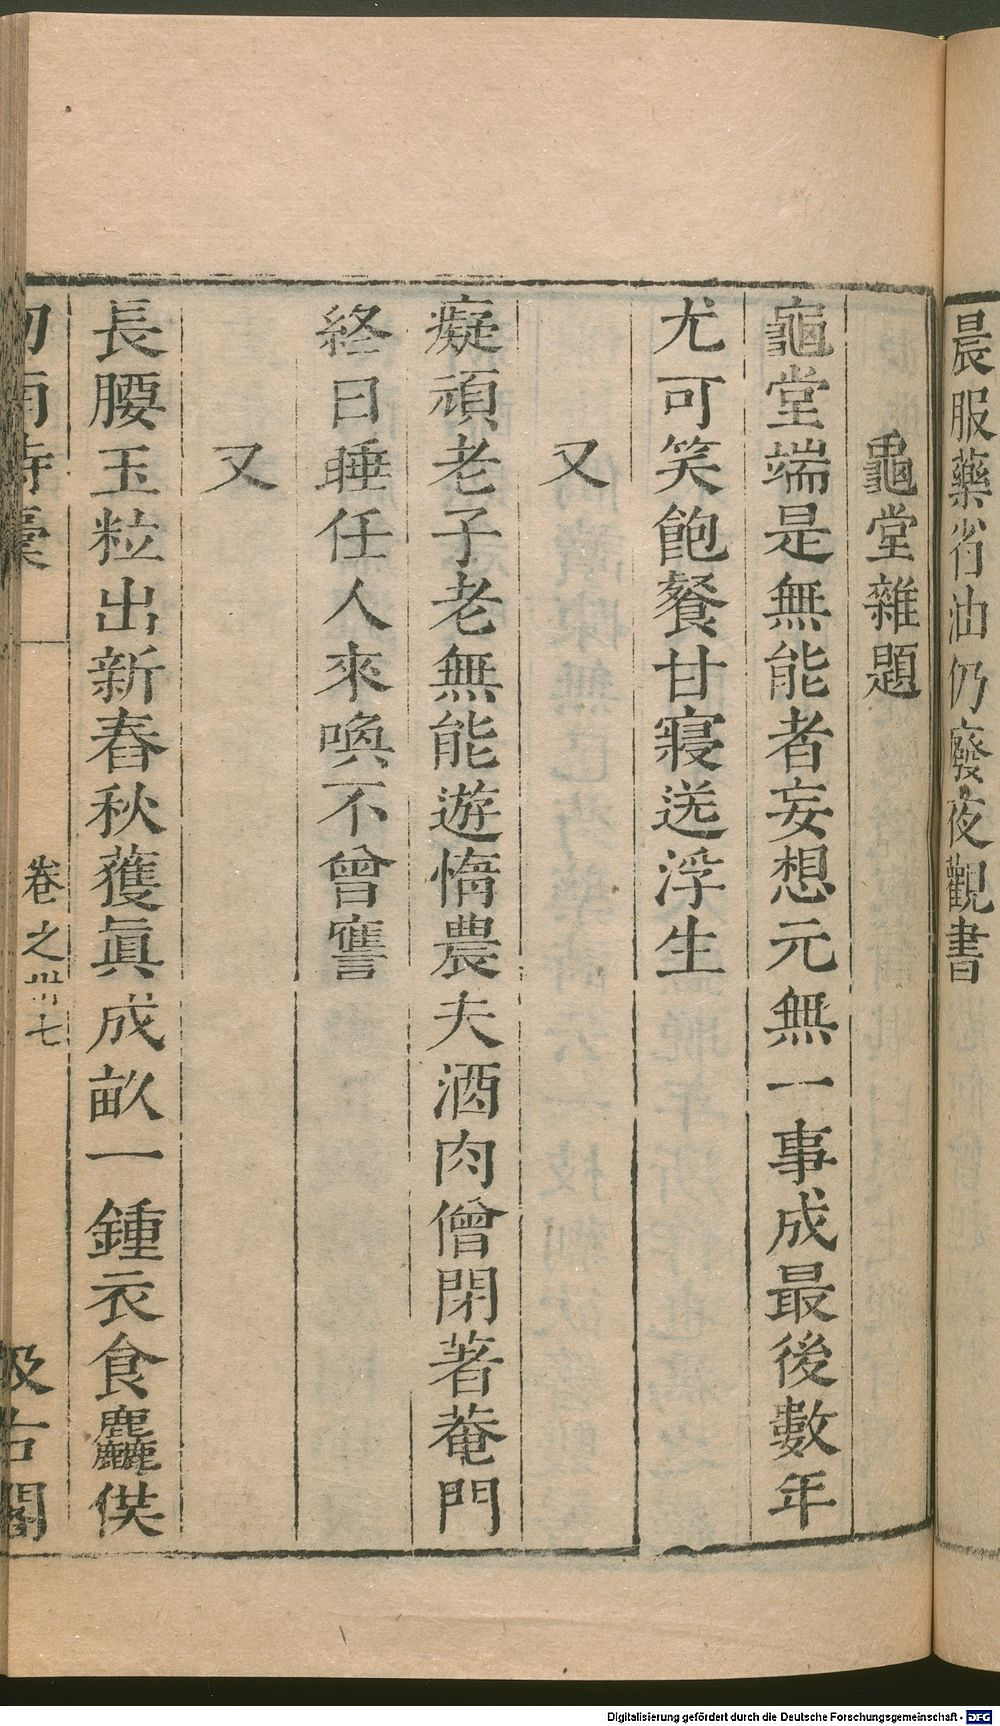 晨服藥省油仍廢夜觀書
龜堂雜題
龜堂端是無能者妄想元無一事成最後數年
尤可笑飽餐甘寢送浮生
又
癡頑老子老無能遊惰農夫酒肉僧閉著菴門
終日睡任人來喚不曾譍
又
長腰玉粒出新舂秋獲眞成畝一鍾衣食麤供
劍南詩稾
卷之卌七
汲古閣
Digitalisierung gefördert durch die Deutsche Forschungsgemeinschaft - DFG